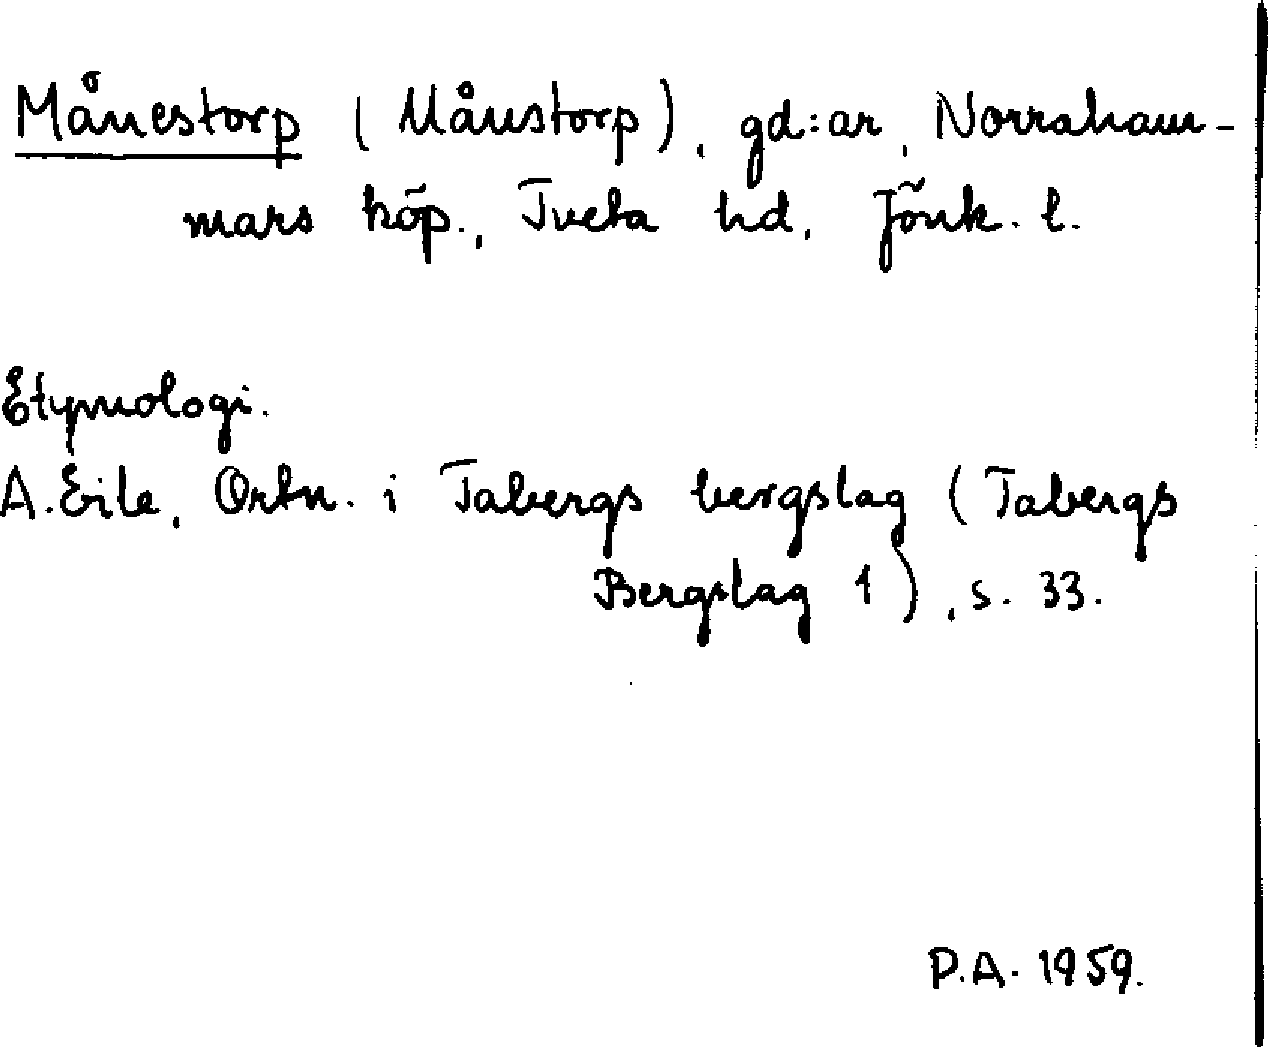 Månestorp (Månstorp), gd:ar, Norraham-
mars köp., Tveta hd, Jönk. l.
Etymologi.
A. Eile, Ortn. i Tabergs bergslag (Tabergs
Bergslag 1), s. 33.
P.A. 1959.